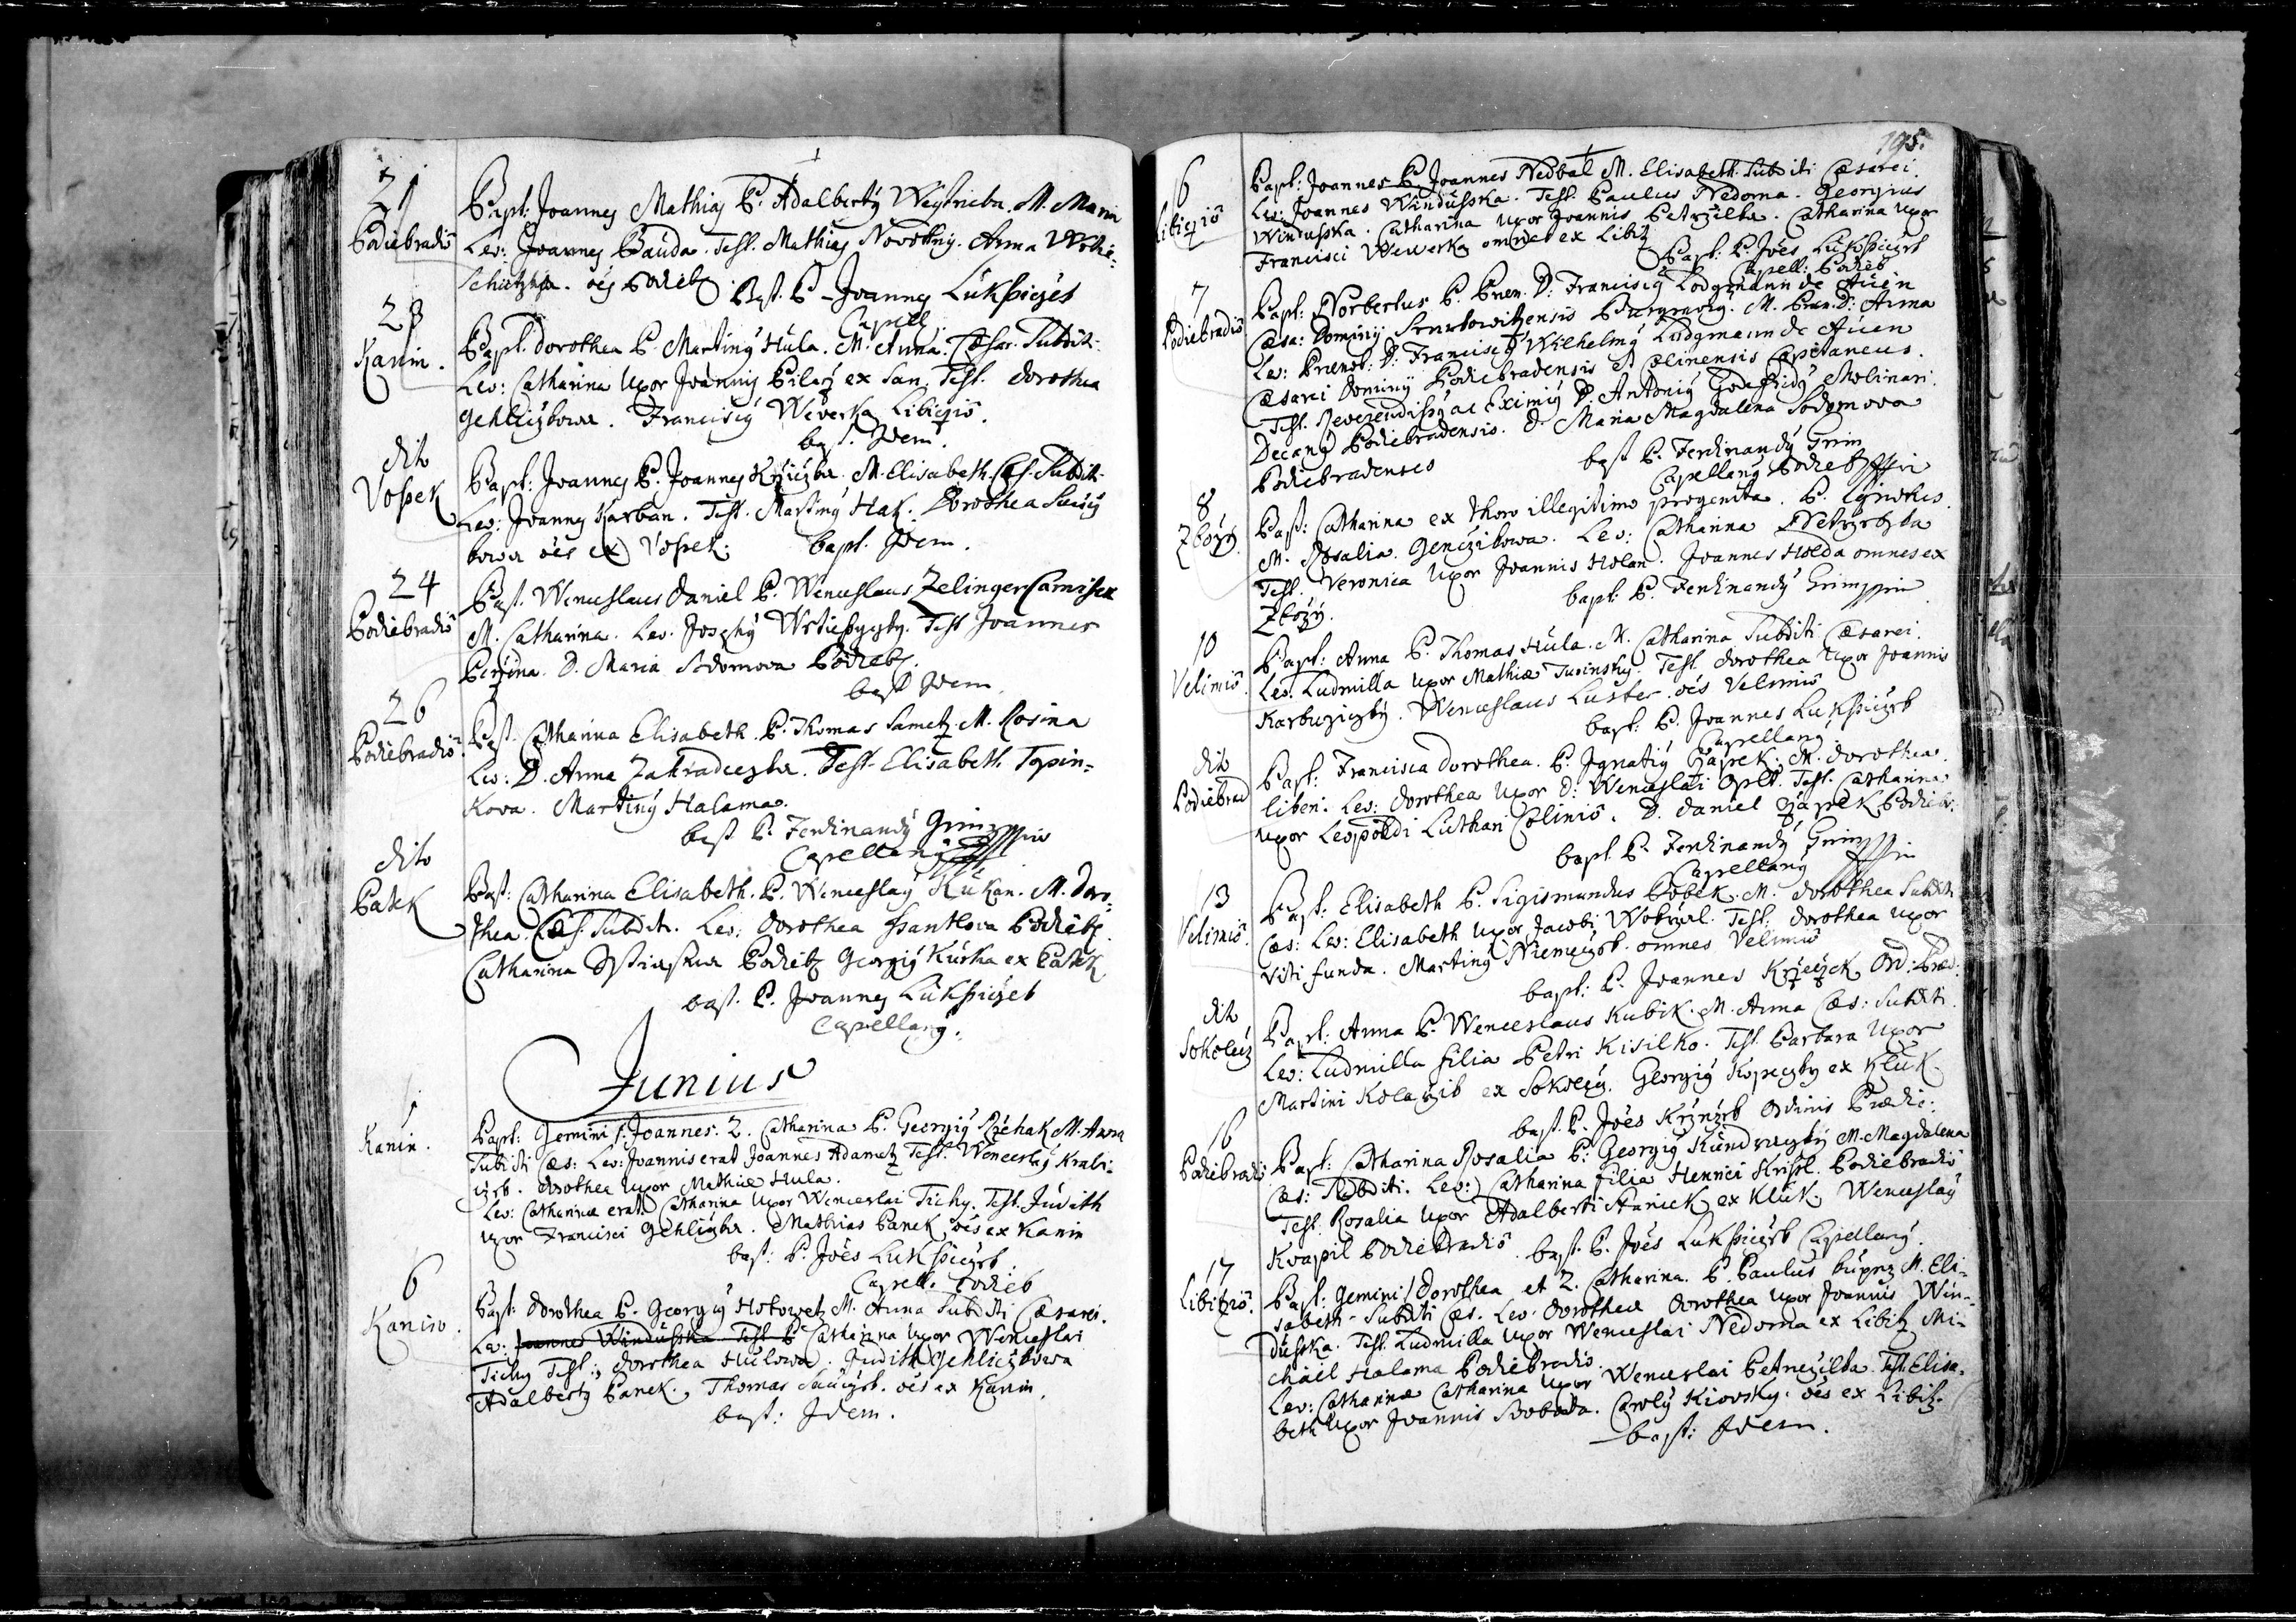 21
Podiebradio
Bapt: Joannes Mathias P. Adalbertỹ M. Maria
Lev: Joannes Bauda. Test. Mathias Novotny. Anna
oẽs Podieb: Bapt. P. Joannes Lukssiczek
Capell.
23
Kanin.
Bapt. Dorothea P. Martinỹ Hula. M. Anna. Cæsar. Subditi.
Lev: Catharina Uxor Joannis Pilarz ex San. Test. Dorothea
Gehliczkowa. Franciscỹ Weverka Libicziõ.
bapt. Idem.
dito
Vossek
Bapt: Joannes P. Joannes Krziczka. M. Elisabeth. Cæs. Subditi
Lev: Joannes Karban. Test. Martinỹ Hak. Dorothea
kowa oẽs ex Vossek. bapt. Idem.
24
Podiebradiõ
Bapt. Wenceslaus Daniel P. Wenceslaus Zelinger
M. Catharina. Lev: Josephỹ Test Joannes
Perzina. D. Maria Sodomova Podieb.
bapt Idem.
26
Podiebradiõ.
Bapt. Catharina Elisabeth. P. Thomas Sametz. M. Rosina
Lev: D. Anna Zahradeczka. Test. Elisabeth Topin=
kova. Martinỹ Halama.
bapt P. Ferdinandỹ Grim
Capellanỹ
dito
Patek
Bapt: Catharina Elisabeth. P. Wenceslaỹ Kukan. M. Doro=
thea. Cæs. Subditi. Lev: Dorothea Podieb.
Catharina Podieb. Georgỹ Kurka ex Patek
bapt. P. Joannes Lukssiczek
Capellanỹ.
Junius
1.
Kanin.
Bapt: Gemini 1. Joannes. 2. Catharina P. Georgiỹ Rzehak M. Anna
Subditi Cæs: Lev: Joannis erat Joannes Adametz Test: Wenceslỹ Krali=
czek. Dorothea Uxor Mathiæ Hula.
Lev: Catharinæ erat Catharina Uxor Wenceslai Tichy. Test. Judith
uxor Francisci Gehliczka. Mathias Panek oẽs ex Kanin
bapt: P. Joẽs Lukssiczek
Capell. Podieb
6
Kanino.
Bapt: Dorothea P. Georgỹ Hotowetz M. Anna Subditi Cæsarei.
Lev: Joannes Windusska Test P. Catharina Uxor Wenceslai
Tichy Test: Dorothea Hulowa. Judith Gehliczkowa
Adalbertỹ Panek. Thomas oẽs ex Kanin.
bapt: Idem.
195.
6
Libiczio
Bapt: Joannes P. Joannes Nedbal M. Elisabeth. Subditi Cæsarei.
Lev: Joannes Windusska. Test. Paulus Nedoma. Georgius
Windusska. Catharina uxor Joannis Petrzilka. Catharina uxor
Francisci Wewerka omnes ex Libitz
Bapt: P. Joẽs Lukssiczek
Capell: Podieb
7
Podiebradiõ
Bapt: Norbertus P. Præn. D: Franciscỹ Lodgmann de Auen
Cæsa: Dominỹ Burgravỹ. M. Præn. D: Anna
Lev: Prænob: D: Franciscỹ Wilhelmỹ Lodgmann de Auen
Cæsarei Dominỹ Podiebradensis et Colinensis Capitaneus.
Test. Reverendissỹ ac Eximỹ D. Antoniỹ Godefridỹ Molinari.
Decanỹ Podiebradensis. D. Maria Magdalena Sodomova
Podiebradenses
bapt P. Ferdinandỹ Grim
Capellanỹ Podieb
8
Zbozy.
Bapt: Catharina ex thoro illegitimo progenita. P. Ignotus
M. Rosalia. Genczikowa. Lev: Catharina
Test. Veronica Uxor Joannis Holan. Joannes Holda omnes ex
Zbozy.
bapt: P. Ferdinandỹ Grim
10
Velimiõ.
Bapt: Anna P. Thomas Hula. M. Catharina Subditi Cæsarei.
Lev. Ludmilla Uxor Mathiæ Tusinsky. Test. Dorothea Uxor Joannis
Wenceslaus Luster oẽs Velimiõ
bapt. P. Joannes Lukssiczek
Capellanỹ.
dito
Podiebrad
Bapt: Francisca Dorothea. P. Ignatiỹ Czapek. M. Dorothea.
liberi. Lev: Dorothea Uxor D: Wenceslai Opelt. Test. Catharina
uxor Leopoldi Luthari Coliniõ. D. Daniel Czapek Podieb:
bapt P. Ferdinandỹ Grim
Capellanỹ
13
Velimiõ.
Bapt: Elisabeth P. Sigismundus Bobek. M. Dorothea Subditi
Cæs: Lev: Elisabeth Uxor Jacobi Test: Dorothea Uxor
Viti Funda. Martinỹ Niemeczek omnes Velimiõ
bapt: P. Joannes Krzeczek Ord: Præd:
dito
Sokolecz
Bapt: Anna P. Wenceslaus Kubik. M. Anna Cæs: Subditi
Lev: Ludmilla filia Petri Kisilko. Test Barbara Uxor
Martini Kolarzik ex Sokolecz. Georgiỹ Kopeczky ex Kluk.
bapt. P. Joẽs Ordinis Prædic:
16
Podiebradiõ
Bapt: Catharina Rosalia P: Georgiỹ M. Magdalena
Cæs: Subditi. Lev: Catharina filia Henrici Kristl. Podiebradiõ
Test. Rosalia Uxor Adalberti Stanek ex Kluk. Wenceslaỹ
Kvapil Podiebradiõ. bapt. P. Joẽs Lukssiczek Capellanỹ.
17
Libitziõ.
Bapt: Gemini 1 Dorothea et 2. Catharina. P. Paulus M. Eli=
sabeth. Subditi Cæs. Lev: Dorotheæ Dorothea Uxor Joannis Win=
dusska. Test. Ludmilla Uxor Wenceslai Nedoma ex Libitz Mi=
chael Halama Podiebradiõ.
Lev: Catharinæ Catharina Uxor Wenceslai Petrczilka. Test. Elisa=
beth Uxor Joannis Svoboda. Carolỹ Kiovsky. oẽs ex Libitz.
bapt: Idem.